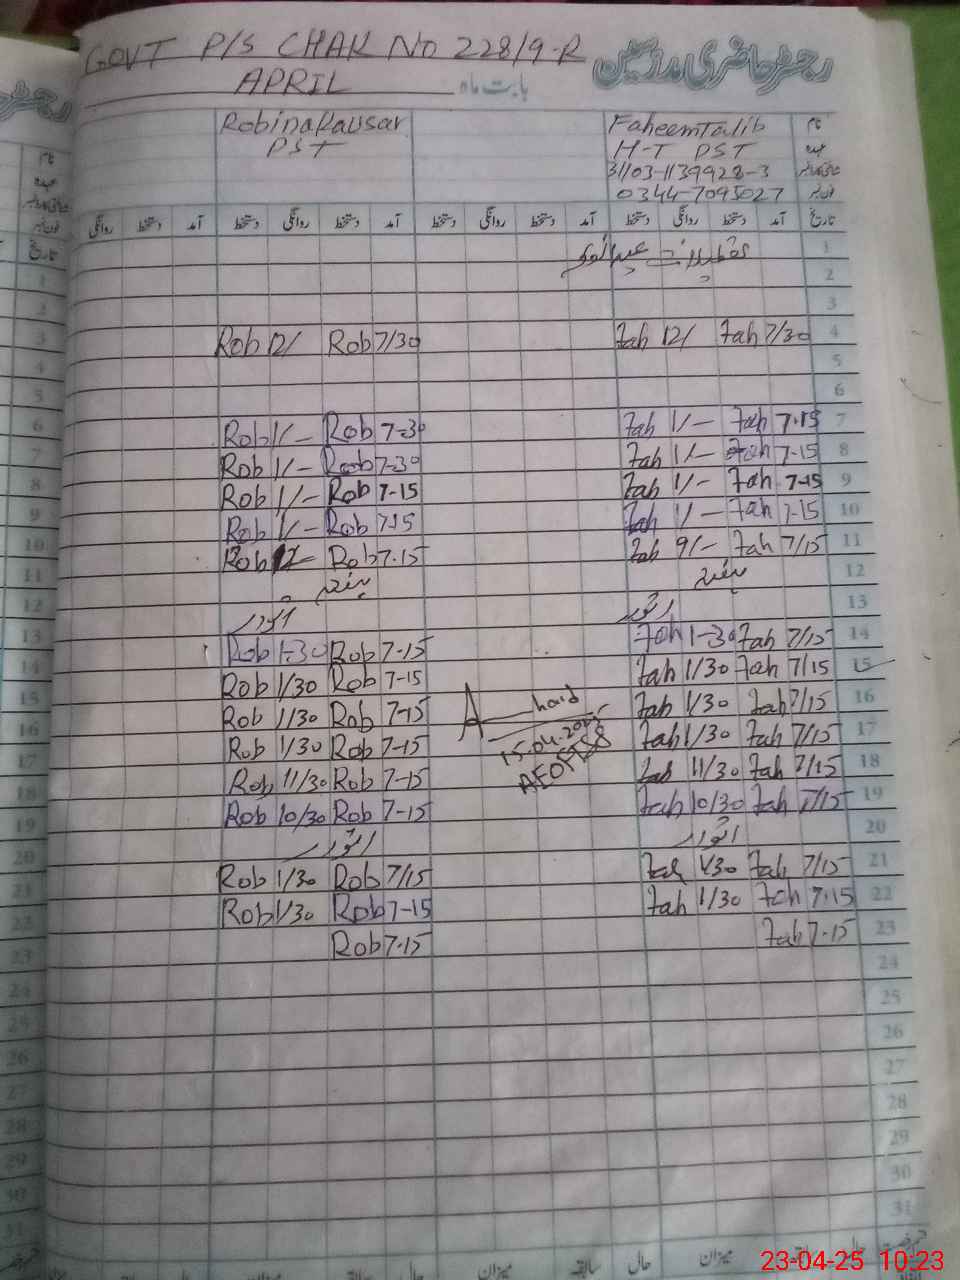 GOVT P/S CHAK NO 228/9-R
رجسٹر حاضری مدرسین
APRIL بابت ماہ
نام Faheem Talib Robina Kausar
عہدہ H-T PST PST
31103-1139928-3
0344-7095027
تاریخ آمد دستخط روانگی دستخط آمد دستخط روانگی دستخط آمد دستخط روانگی
1 تعطیلات عید الفطر
2
3
Rob 12/ Rob 7/30 Fah 12/ Fah 7/30 4
5
6
Rob 1/- Rob 7-30 Fah 1/- Fah 7-15 7
Rob 1/- Rob 7-30 Fah 1/- Fah 7-15 8
Rob 1/- Rob 7-15 Fah 1/- Fah 7-15 9
Rob 1/- Rob 7-15 Fah 1/- Fah 7-15 10
Rob 12/- Rob 7-15 Fah 9/- Fah 7/15 11
12
اتوار اتوار 13
Rob 1-30 Rob 7-15 Fah 1-30 Fah 7/15 14
Rob 1/30 Rob 7-15 Fah 1/30 Fah 7/15 15
Rob 1/30 Rob 7-15 Fah 1/30 Fah 7/15 16
15.04.2025
AEO FTSS
Rob 1/30 Rob 7-15 Fah 1/30 Fah 7/15 17
Rob 11/30 Rob 7-15 Fah 11/30 Fah 7/15 18
Rob 10/30 Rob 7-15 Fah 10/30 Fah 7/15 19
اتوار اتوار 20
Rob 1/30 Rob 7/15 Fah 1/30 Fah 7/15 21
Rob 1/30 Rob 7-15 Fah 1/30 Fah 7-15 22
Rob 7-15 Fah 7-15 23
24
25
26
27
28
29
30
31
حال سابقہ میزان حال سابقہ میزان حال
23-04-25 10:23